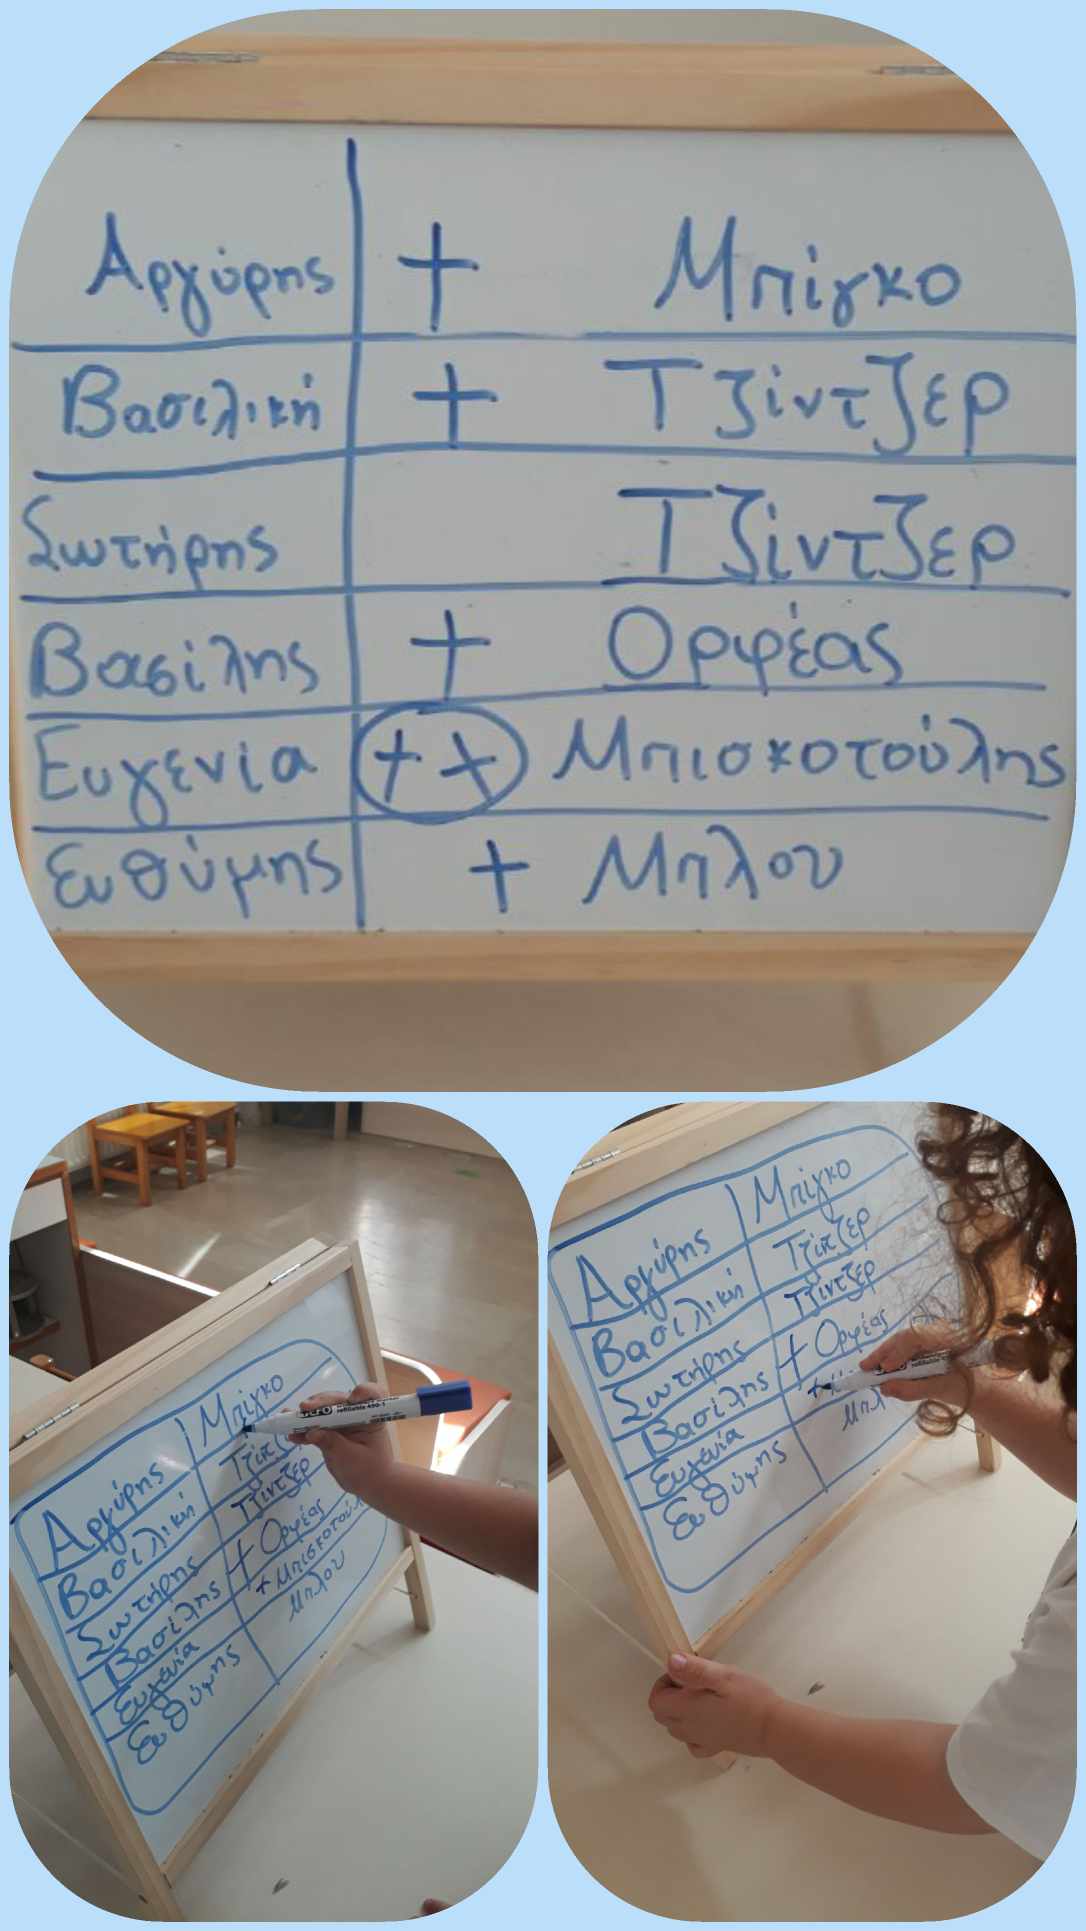 Αργύρης + Μπίγκο
Βασιλική + Τζίντζερ
Σωτήρης Τζίντζερ
Βασίλης + Ορφέας
Ευγενία ++ Μπισκοτούλης
Ευθύμης + Μπλου
Αργύρης Μπίγκο
Βασιλική
Σωτήρης Τζίντζερ
Βασίλης + Ορφέας
Ευγενία + Μπισκοτούλ
Ευθύμης Μπλου
refillable 490-1
Αργύρης Μπίγκο
Βασιλική Τζίντζερ
Σωτήρης Τζίντζερ
Βασίλης + Ορφέας
Ευγενία +
Ευθύμης Μπλ